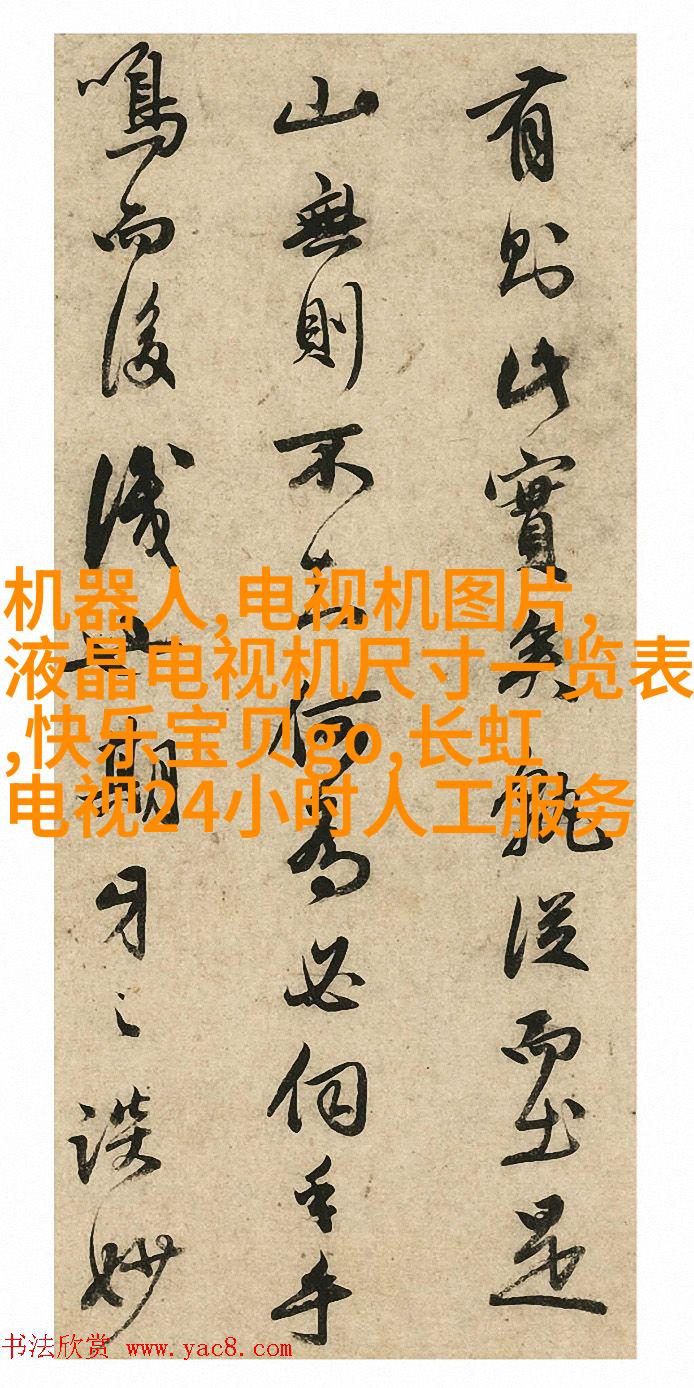 有则此實矣孰從而出是
山無則不何為必伺
鳴而後識之期牙之談妙
机器人,电视机图片,
液晶电视机尺寸一览表
,快乐宝贝go,长虹
电视24小时人工服务
书法欣赏 www.yac8.com